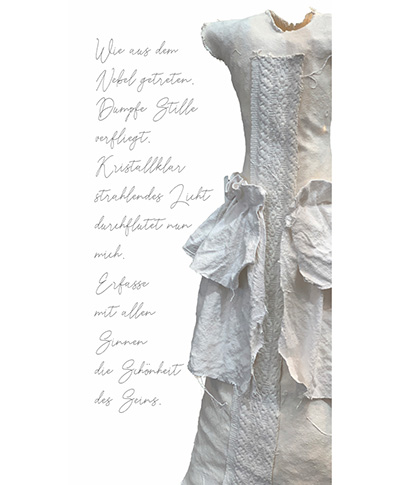 Wie aus dem
Nebel getreten.
Dumpfe Stille
verfliegt.
Kristallklar
strahlendes Licht
durchflutet nun
mich.
Erfasse
mit allen
Sinnen
die Schönheit
des Seins.